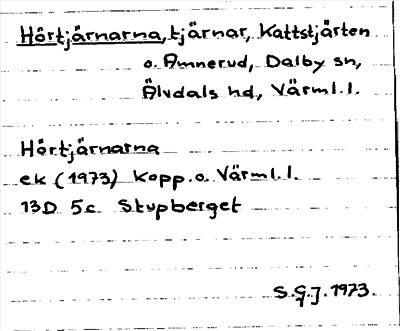 Hårtjärnarna, tjärnar, Kattstjärten
o. Amnerud, Dalby sn,
Älvdals hd, Värml. l.
Hårtjärnarna
ek (1973) Kopp. o. Värml. l.
13D 5c Stupberget
S.G.J. 1973.